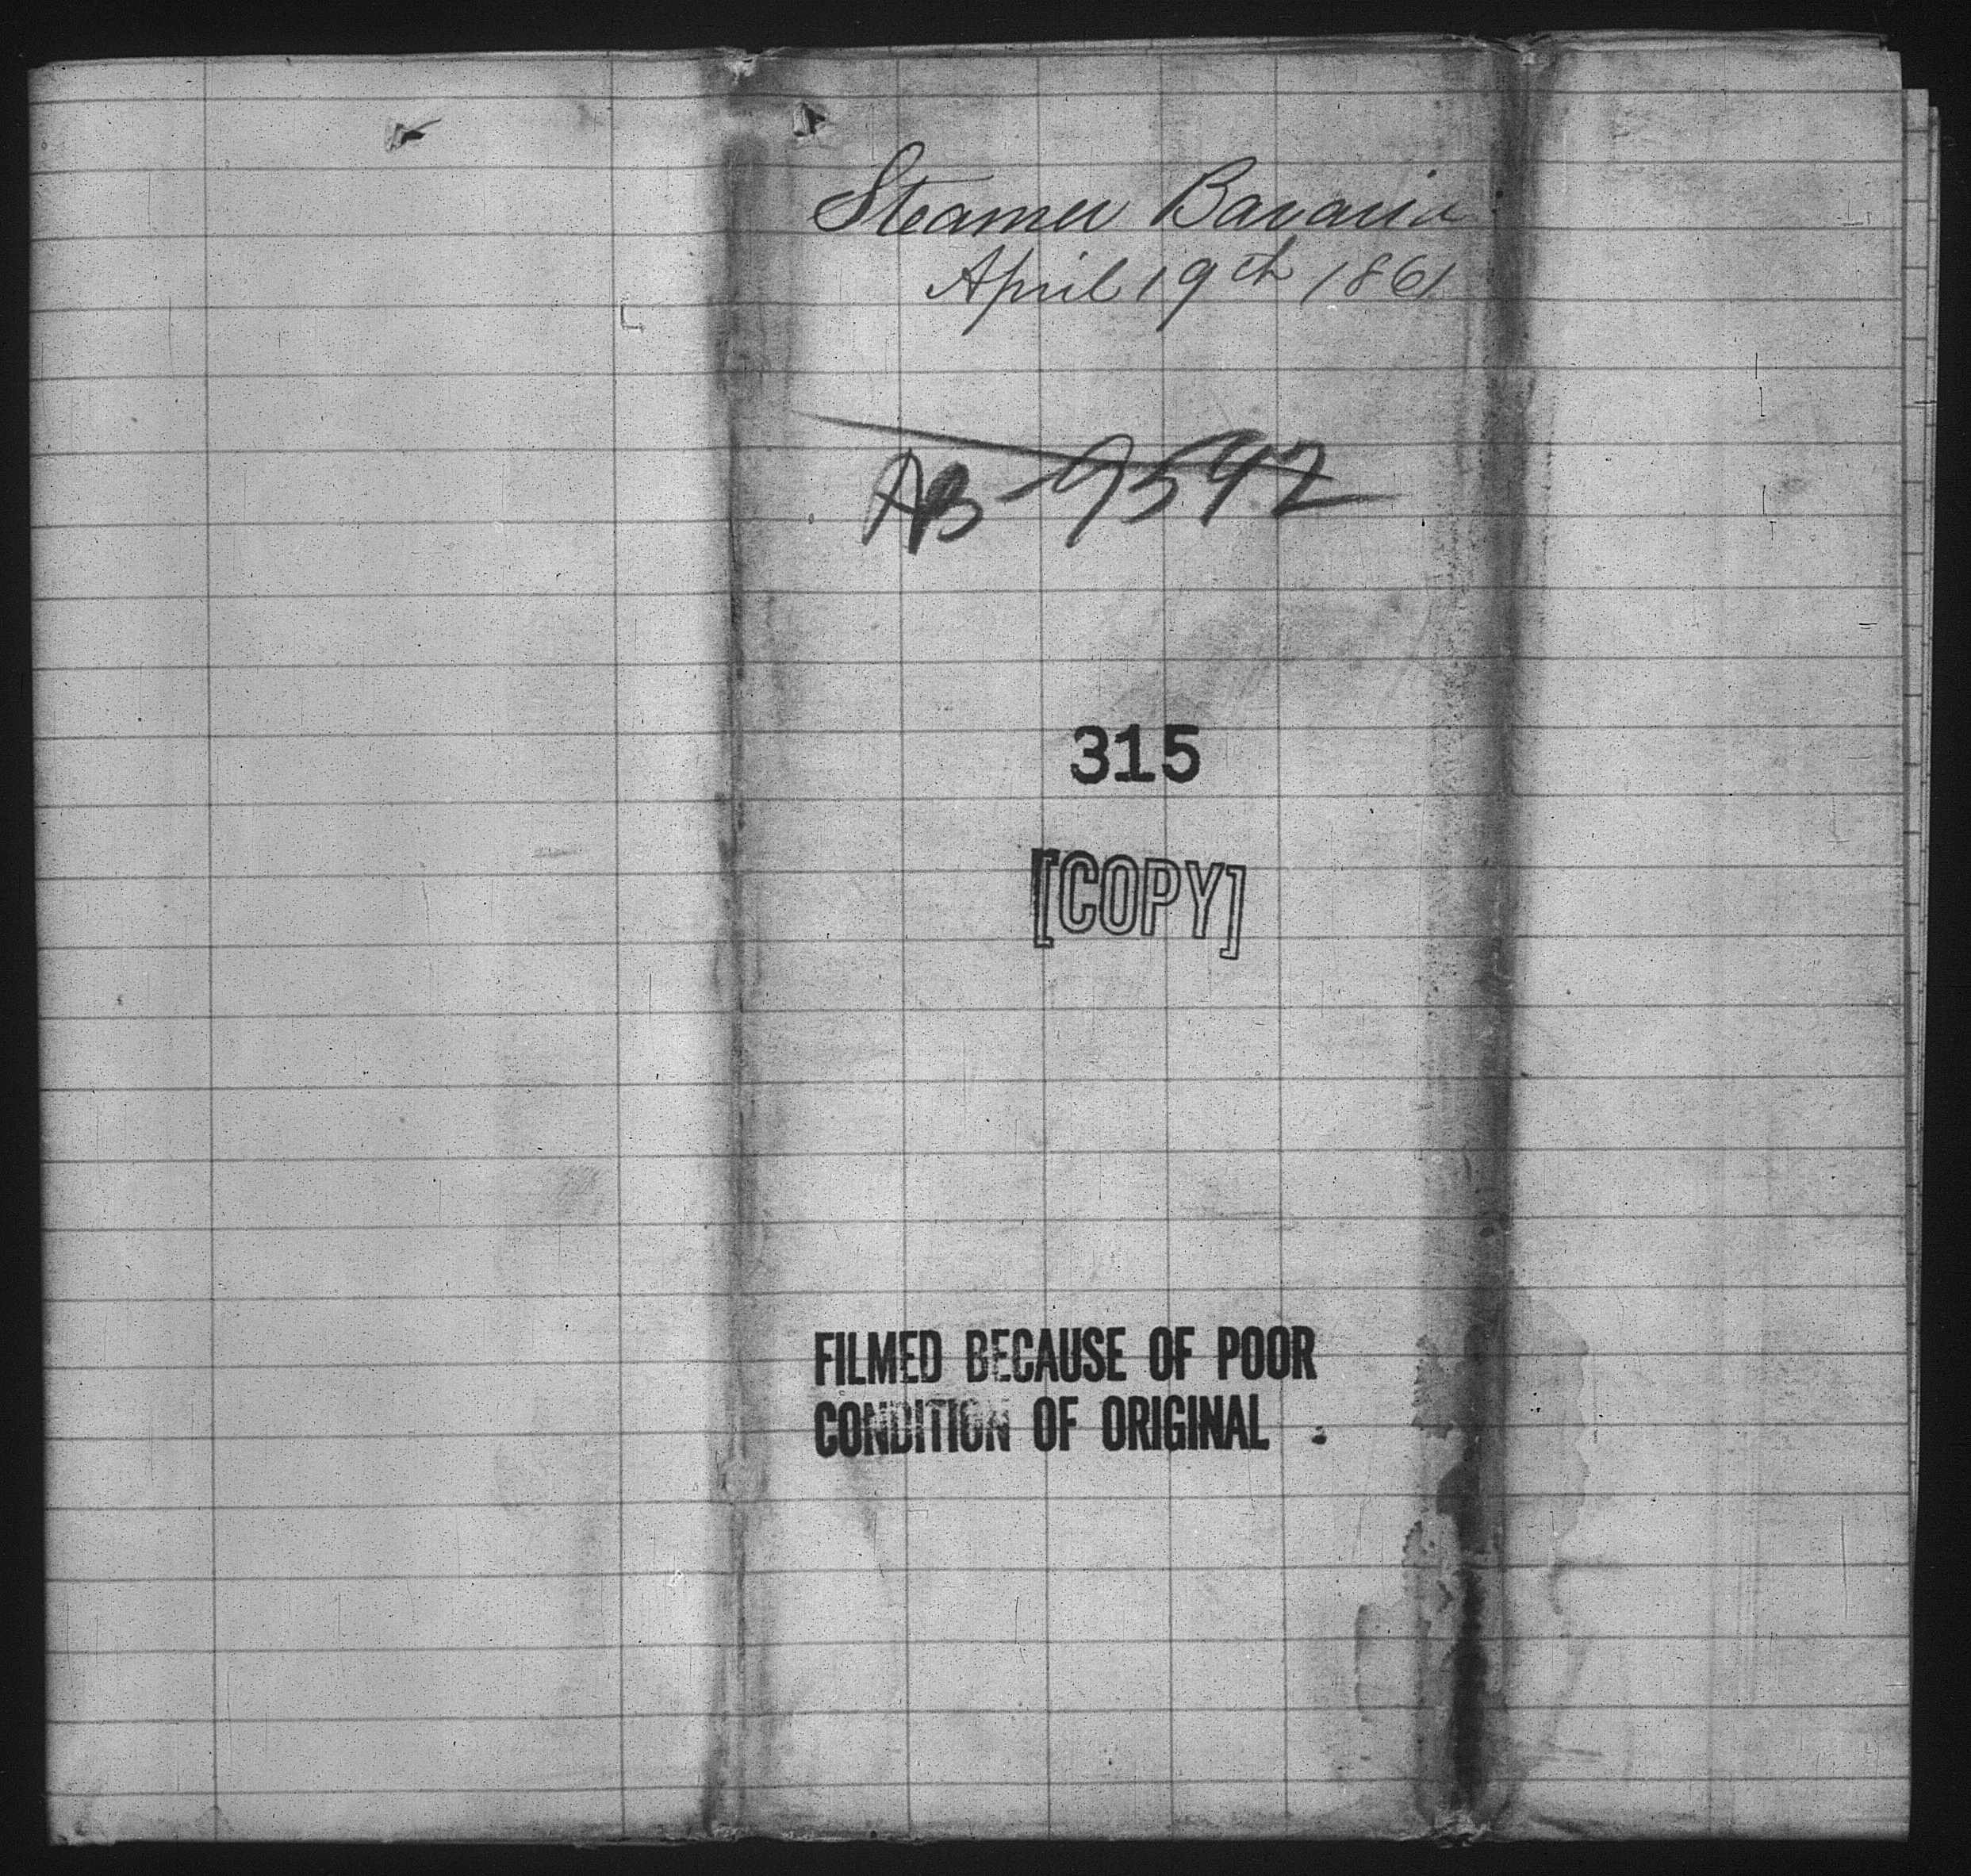 Steamer Bavaria
April 19th 1861
AB-9592
315
[COPY]
FILMED BECAUSE OF POOR
CONDITION OF ORIGINAL